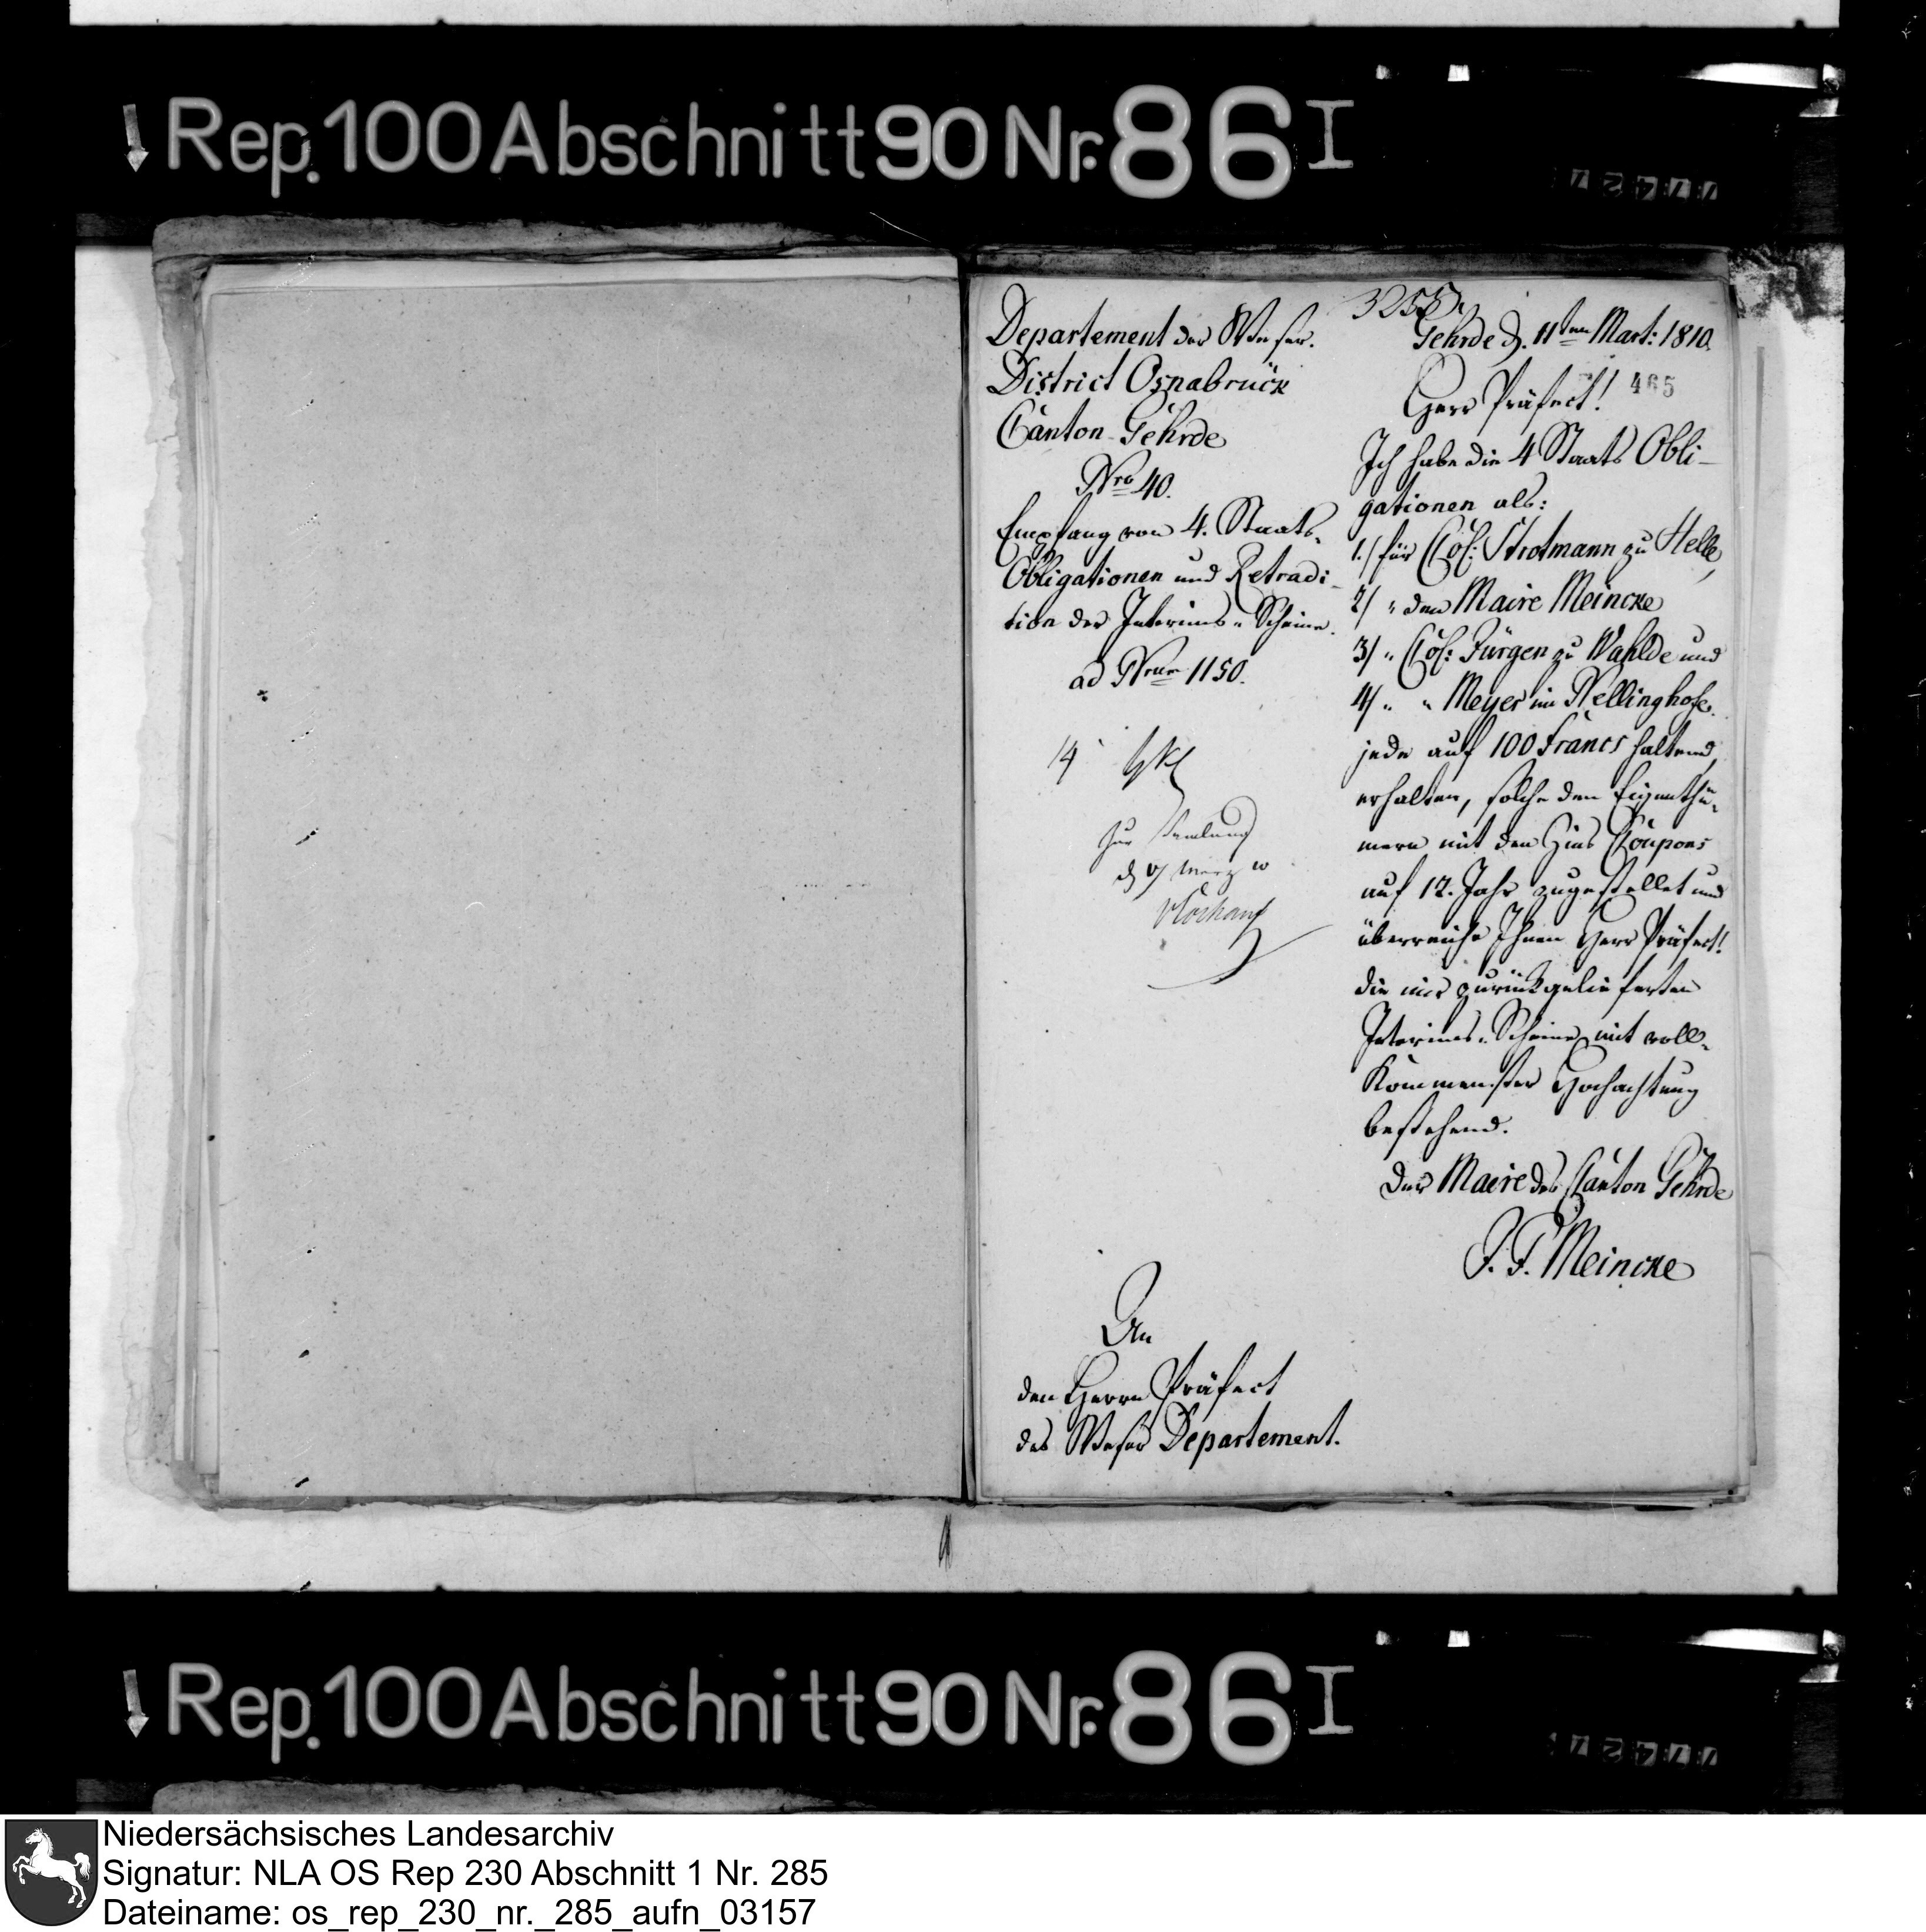 Rep. 100 Abschnitt 90 Nr. 86 I
Departement der Weser.
District Osnabrück
Canton Gehrde
Nro 40.
Empfang von 4. Staats-
Obligationen und Retradi-
tion der Interims-Scheine.
ad Nrum 1150.
14
zur Samlung
Gehrde d. 11ten Mart: 1810.
465
Herr Präfect!
Ich habe die 4 Staats Obli-
gationen als:
1./ für Col: Strotmann zu Helle,
2/ " den Maire Meincke
3/ " Col: Jürgen zu Wahlde und
4/ " " Meyer im Nellinghofe.
jede auf 100 Francs haltend,
erhalten, solche den Eigenthü-
mern mit den Zins Coupons
auf 12. Jahr zugestellet und
überreiche Ihnen Herr Präfect!
die mir zurückgelieferten
Interims-Scheine mit voll-
kommenster Hochachtung
bestehend.
Der Maire des Canton Gehrde
J. F. Meincke
An
den Herrn Präfect
des Weser Departement.
Rep. 100 Abschnitt 90 Nr. 86 I
Niedersächsisches Landesarchiv
Signatur: NLA OS Rep 230 Abschnitt 1 Nr. 285
Dateiname: os_rep_230_nr._285_aufn_03157